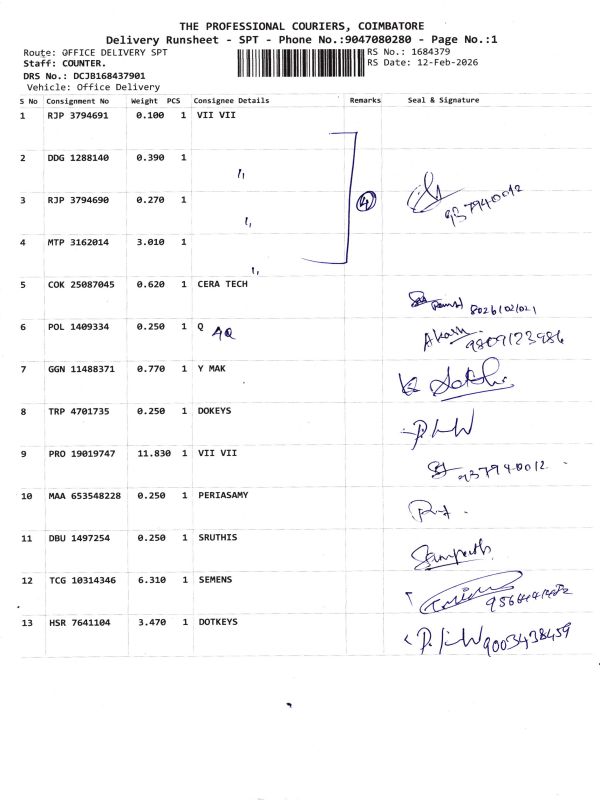 THE PROFESSIONAL COURIERS, COIMBATORE
Delivery Runsheet - SPT - Phone No.:9047080280 - Page No.:1
Route: OFFICE DELIVERY SPT RS No.: 1684379
Staff: COUNTER. RS Date: 12-Feb-2026
DRS No.: DCJB168437901
Vehicle: Office Delivery
S No Consignment No Weight PCS Consignee Details Remarks Seal & Signature
1 RJP 3794691 0.100 1 VII VII
2 DDG 1288140 0.390 1
3 RJP 3794690 0.270 1 4
4 MTP 3162014 3.010 1
5 COK 25087045 0.620 1 CERA TECH
6 POL 1409334 0.250 1 Q 4Q Akash 9809123986
7 GGN 11488371 0.770 1 Y MAK
8 TRP 4701735 0.250 1 DOKEYS
9 PRO 19019747 11.830 1 VII VII 937940012
10 MAA 653548228 0.250 1 PERIASAMY
11 DBU 1497254 0.250 1 SRUTHIS Sampath
12 TCG 10314346 6.310 1 SEMENS
13 HSR 7641104 3.470 1 DOTKEYS 9003438459